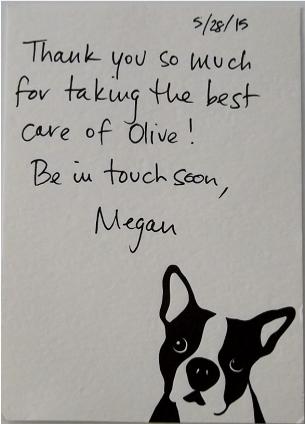 5/28/15
Thank you so much
for taking the best
care of Olive!
Be in touch soon,
Megan